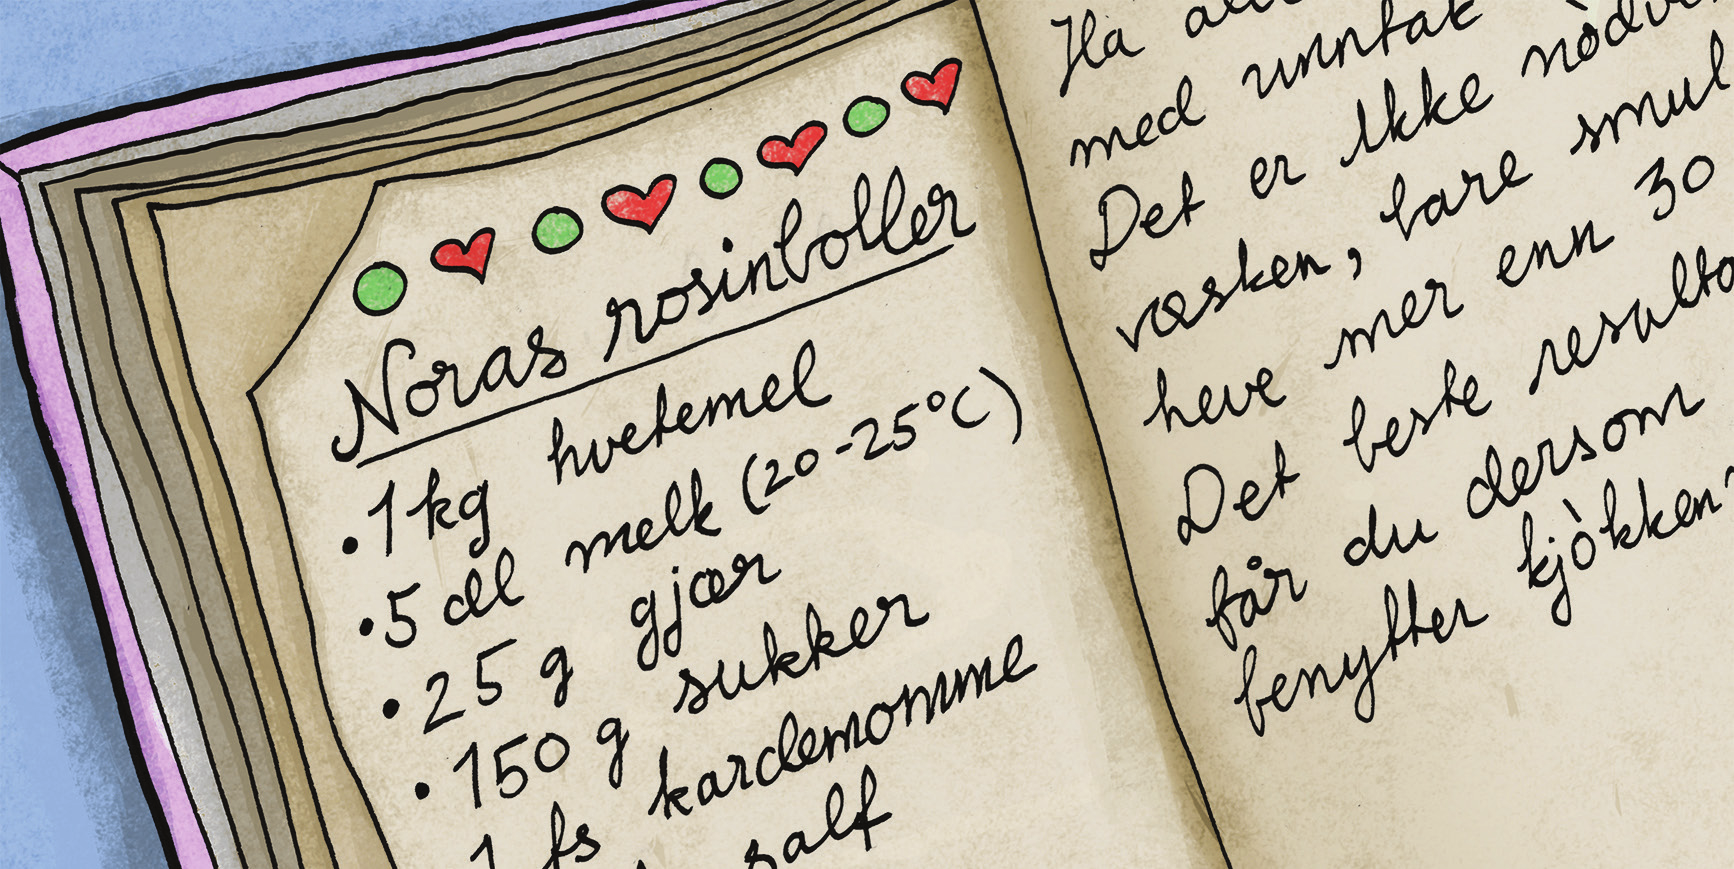 Noras rosinboller
• 1 kg hvetemel
• 5 dl melk (20-25°C)
• 25 g gjær
• 150 g sukker
1 ts kardemomme
salt
Ha
med unntak
Det er ikke
væsken, bare smul
heve mer enn 30
Det beste
får du dersom
benytter